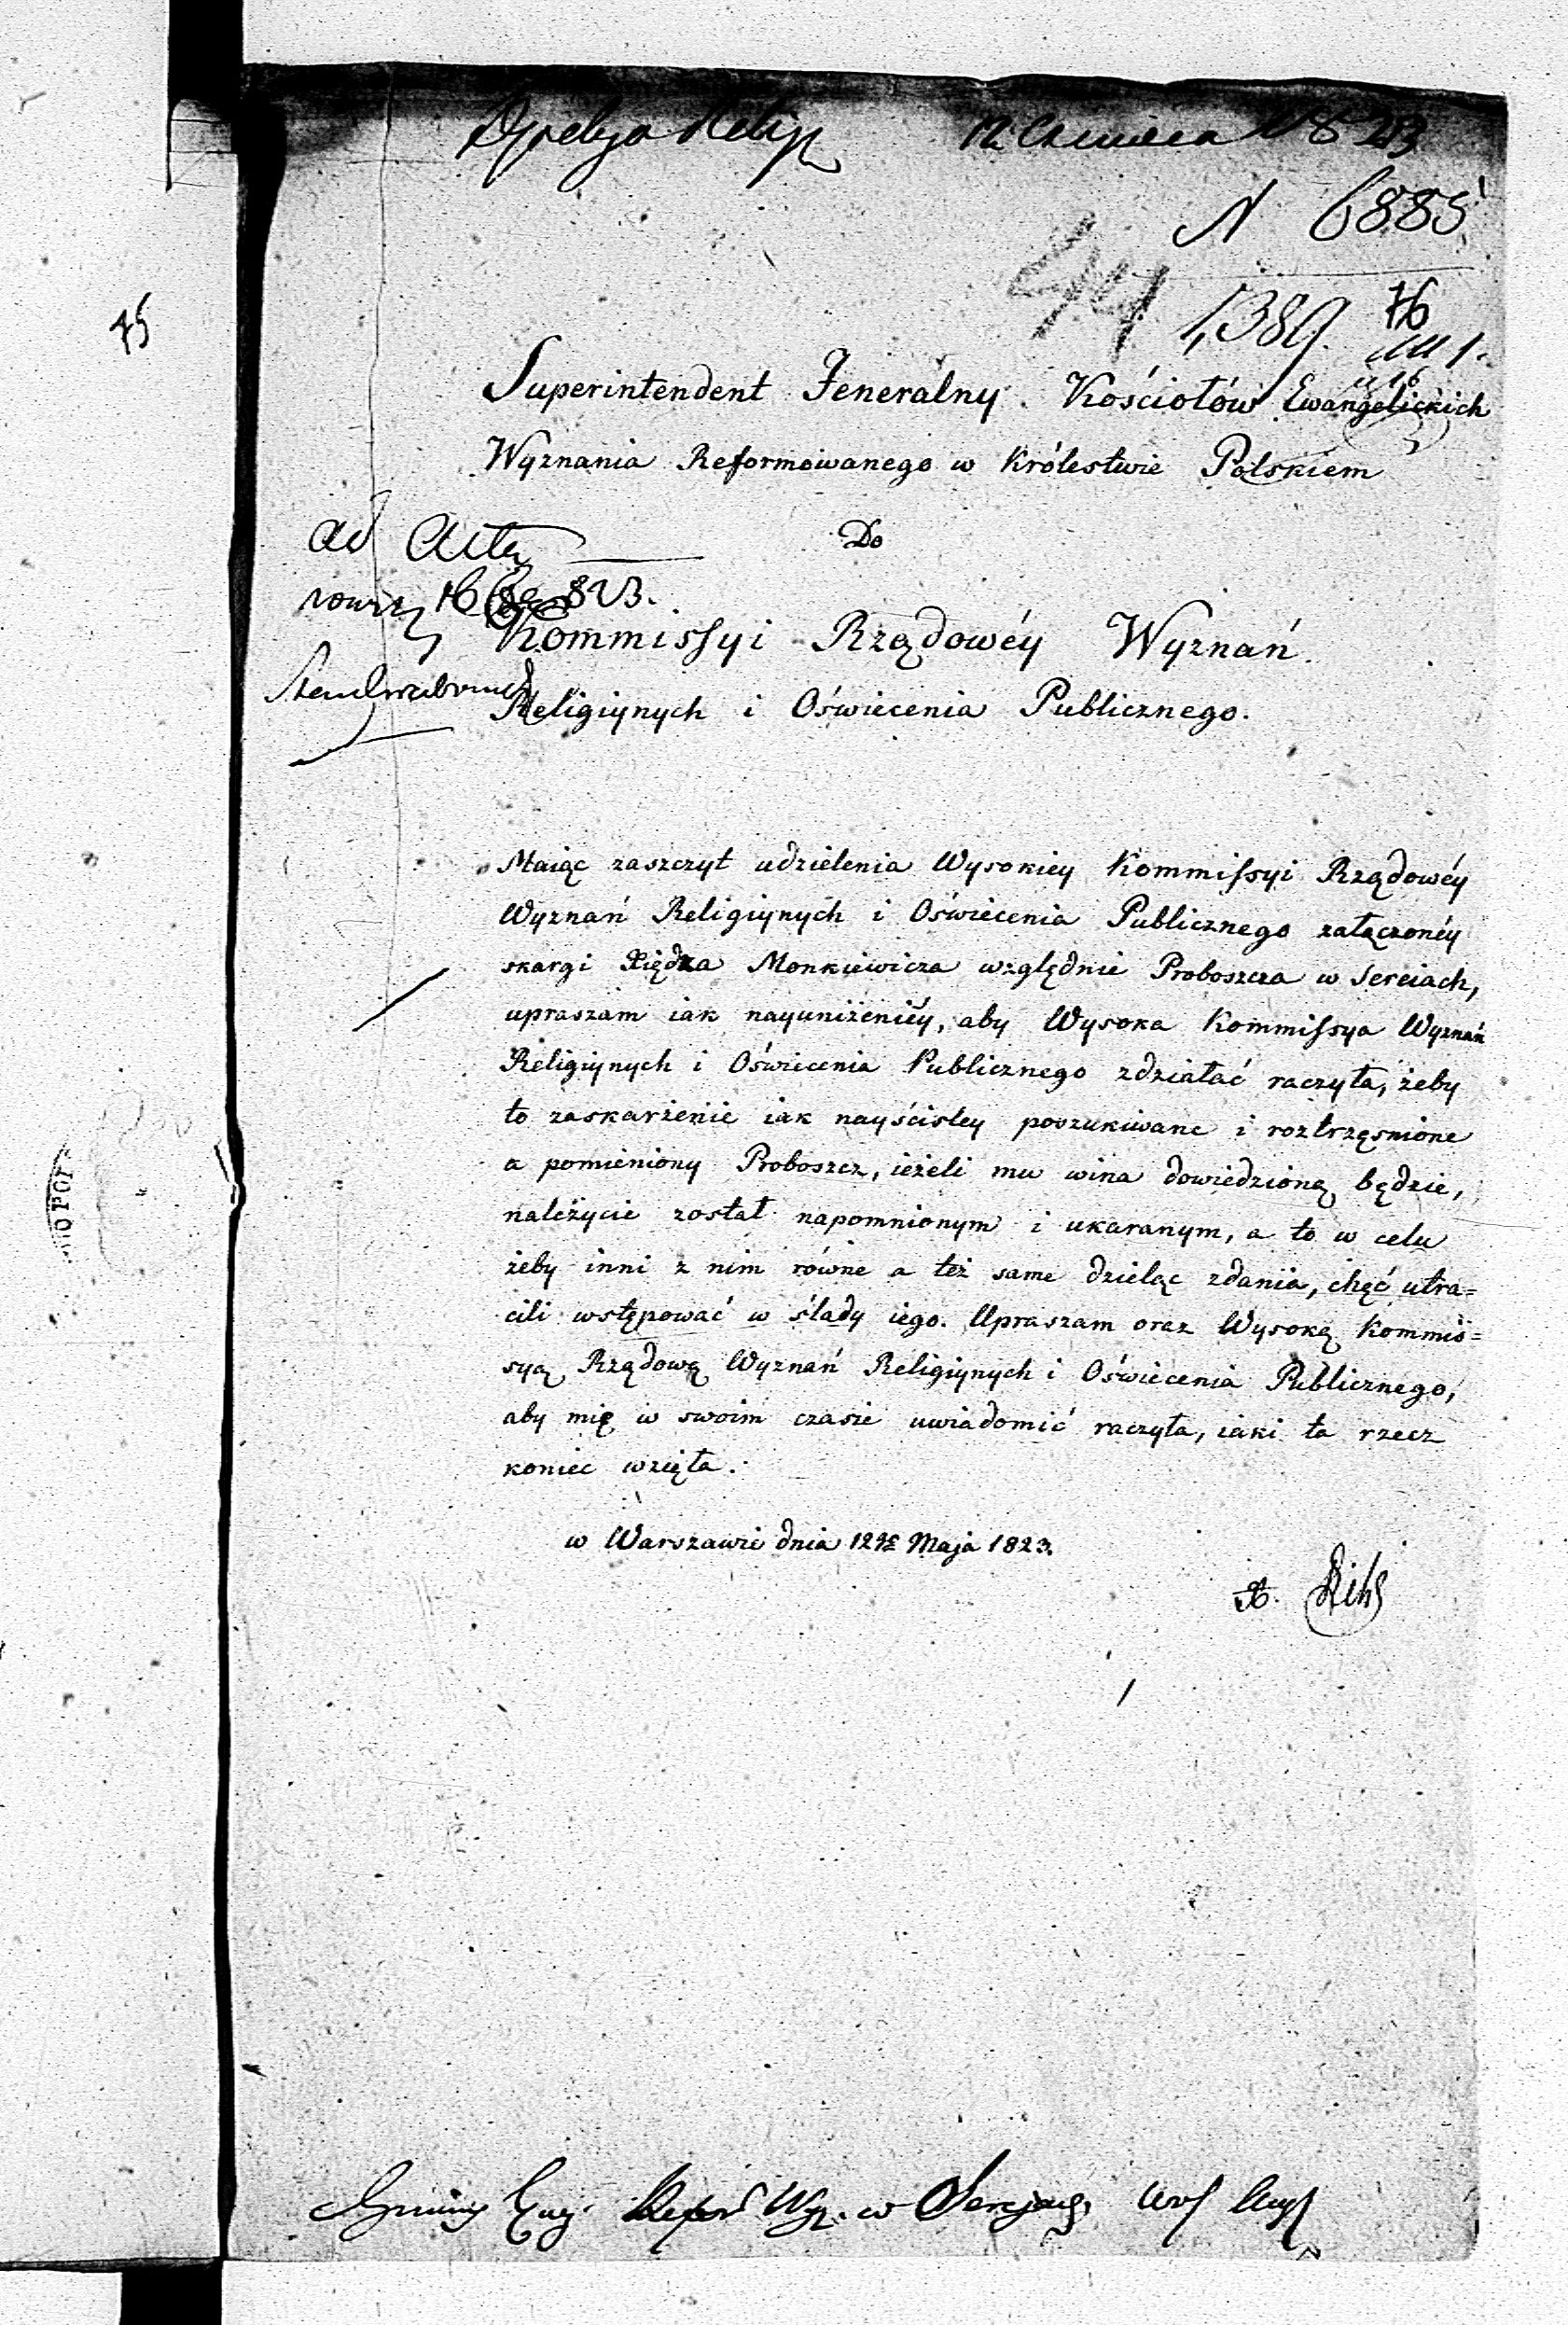 12 Czerwca 1823
N 6885
75
1,389. 76
Superintendent Jeneralny Kościołów Ewangelickich
Wyznania Reformowanego w Królestwie Polskiem
ad Acta
Do
16 823.
Kommissyi Rządowéy Wyznań
Religiynych i Oświecenia Publicznego.
Maiąc zaszczyt udzielenia Wysokiey Kommissyi Rządowéy
Wyznań Religiynych i Oświecenia Publicznego załączonéy
skargi Xiędza Monkiewicza względnie Proboszcza w Sereiach,
upraszam iak nayuniżeniéy, aby Wysoka Kommissya Wyznań
Religiynych i Oświecenia Publicznego zdziałać raczyła, żeby
to zaskarżenie iak nayściśley poszukiwane i roztrzęsnione
a pomieniony Proboszcz, ieżeli mu wina dowiedzioną będzie,
należycie został napomnionym i ukaranym, a to w celu
żeby inni z nim równe a też same dzieląc zdania, chęć utra=
cili wstępować w ślady iego. Upraszam oraz Wysoką Kommis=
syą Rządową Wyznań Religiynych i Oświecenia Publicznego,
aby mię w swoim czasie uwiadomić raczyła, iaki ta rzecz
koniec wzięła.
w Warszawie dnia 12go Maja 1823.
Wyz. w Serejach